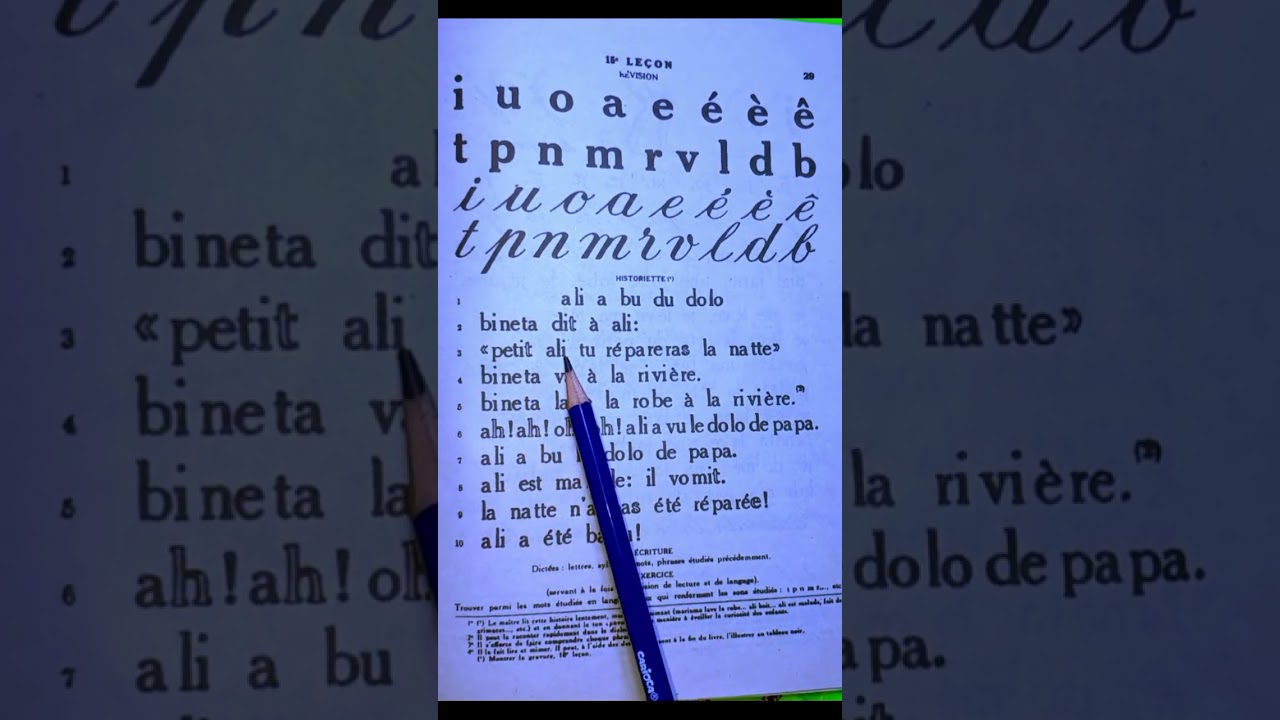 18e LEÇON
RÉVISION
29
i u o a e é è ê
t p n m r v l d b
i u o a e é è ê
t p n m r v l d b
HISTORIETTE (1)
1 ali a bu du dolo
2 bineta dit à ali:
3 «petit ali tu répareras la natte»
4 bineta à la rivière.
5 bineta la robe à la rivière.(2)
6 ah! ah! oh! oh! ali a vu le dolo de papa.
7 ali a bu dolo de papa.
8 ali est il vomit.
9 la natte été réparée!
10 ali a été
ÉCRITURE
Dictées : lettres, mots, phrases étudiés précédemment.
EXERCICE
(servant à la fois de lecture et de langage).
Trouver parmi les mots étudiés en qui renferment les sons étudiés : t p n m r... etc
1° (1) Le maître lit cette histoire lentement, (mariama lave la robe... ali boit... ali est malade, fait des
grimaces..., etc.) et en donnant le ton manière à éveiller la curiosité des enfants.
2° Il peut la raconter rapidement dans le
3° Il s'efforce de faire comprendre chaque à la fin du livre, l'illustrer au tableau noir.
4° Il la fait lire et mimer. Il peut, à l'aide des
(2) Montrer la gravure, 18e leçon.
CARIOCA